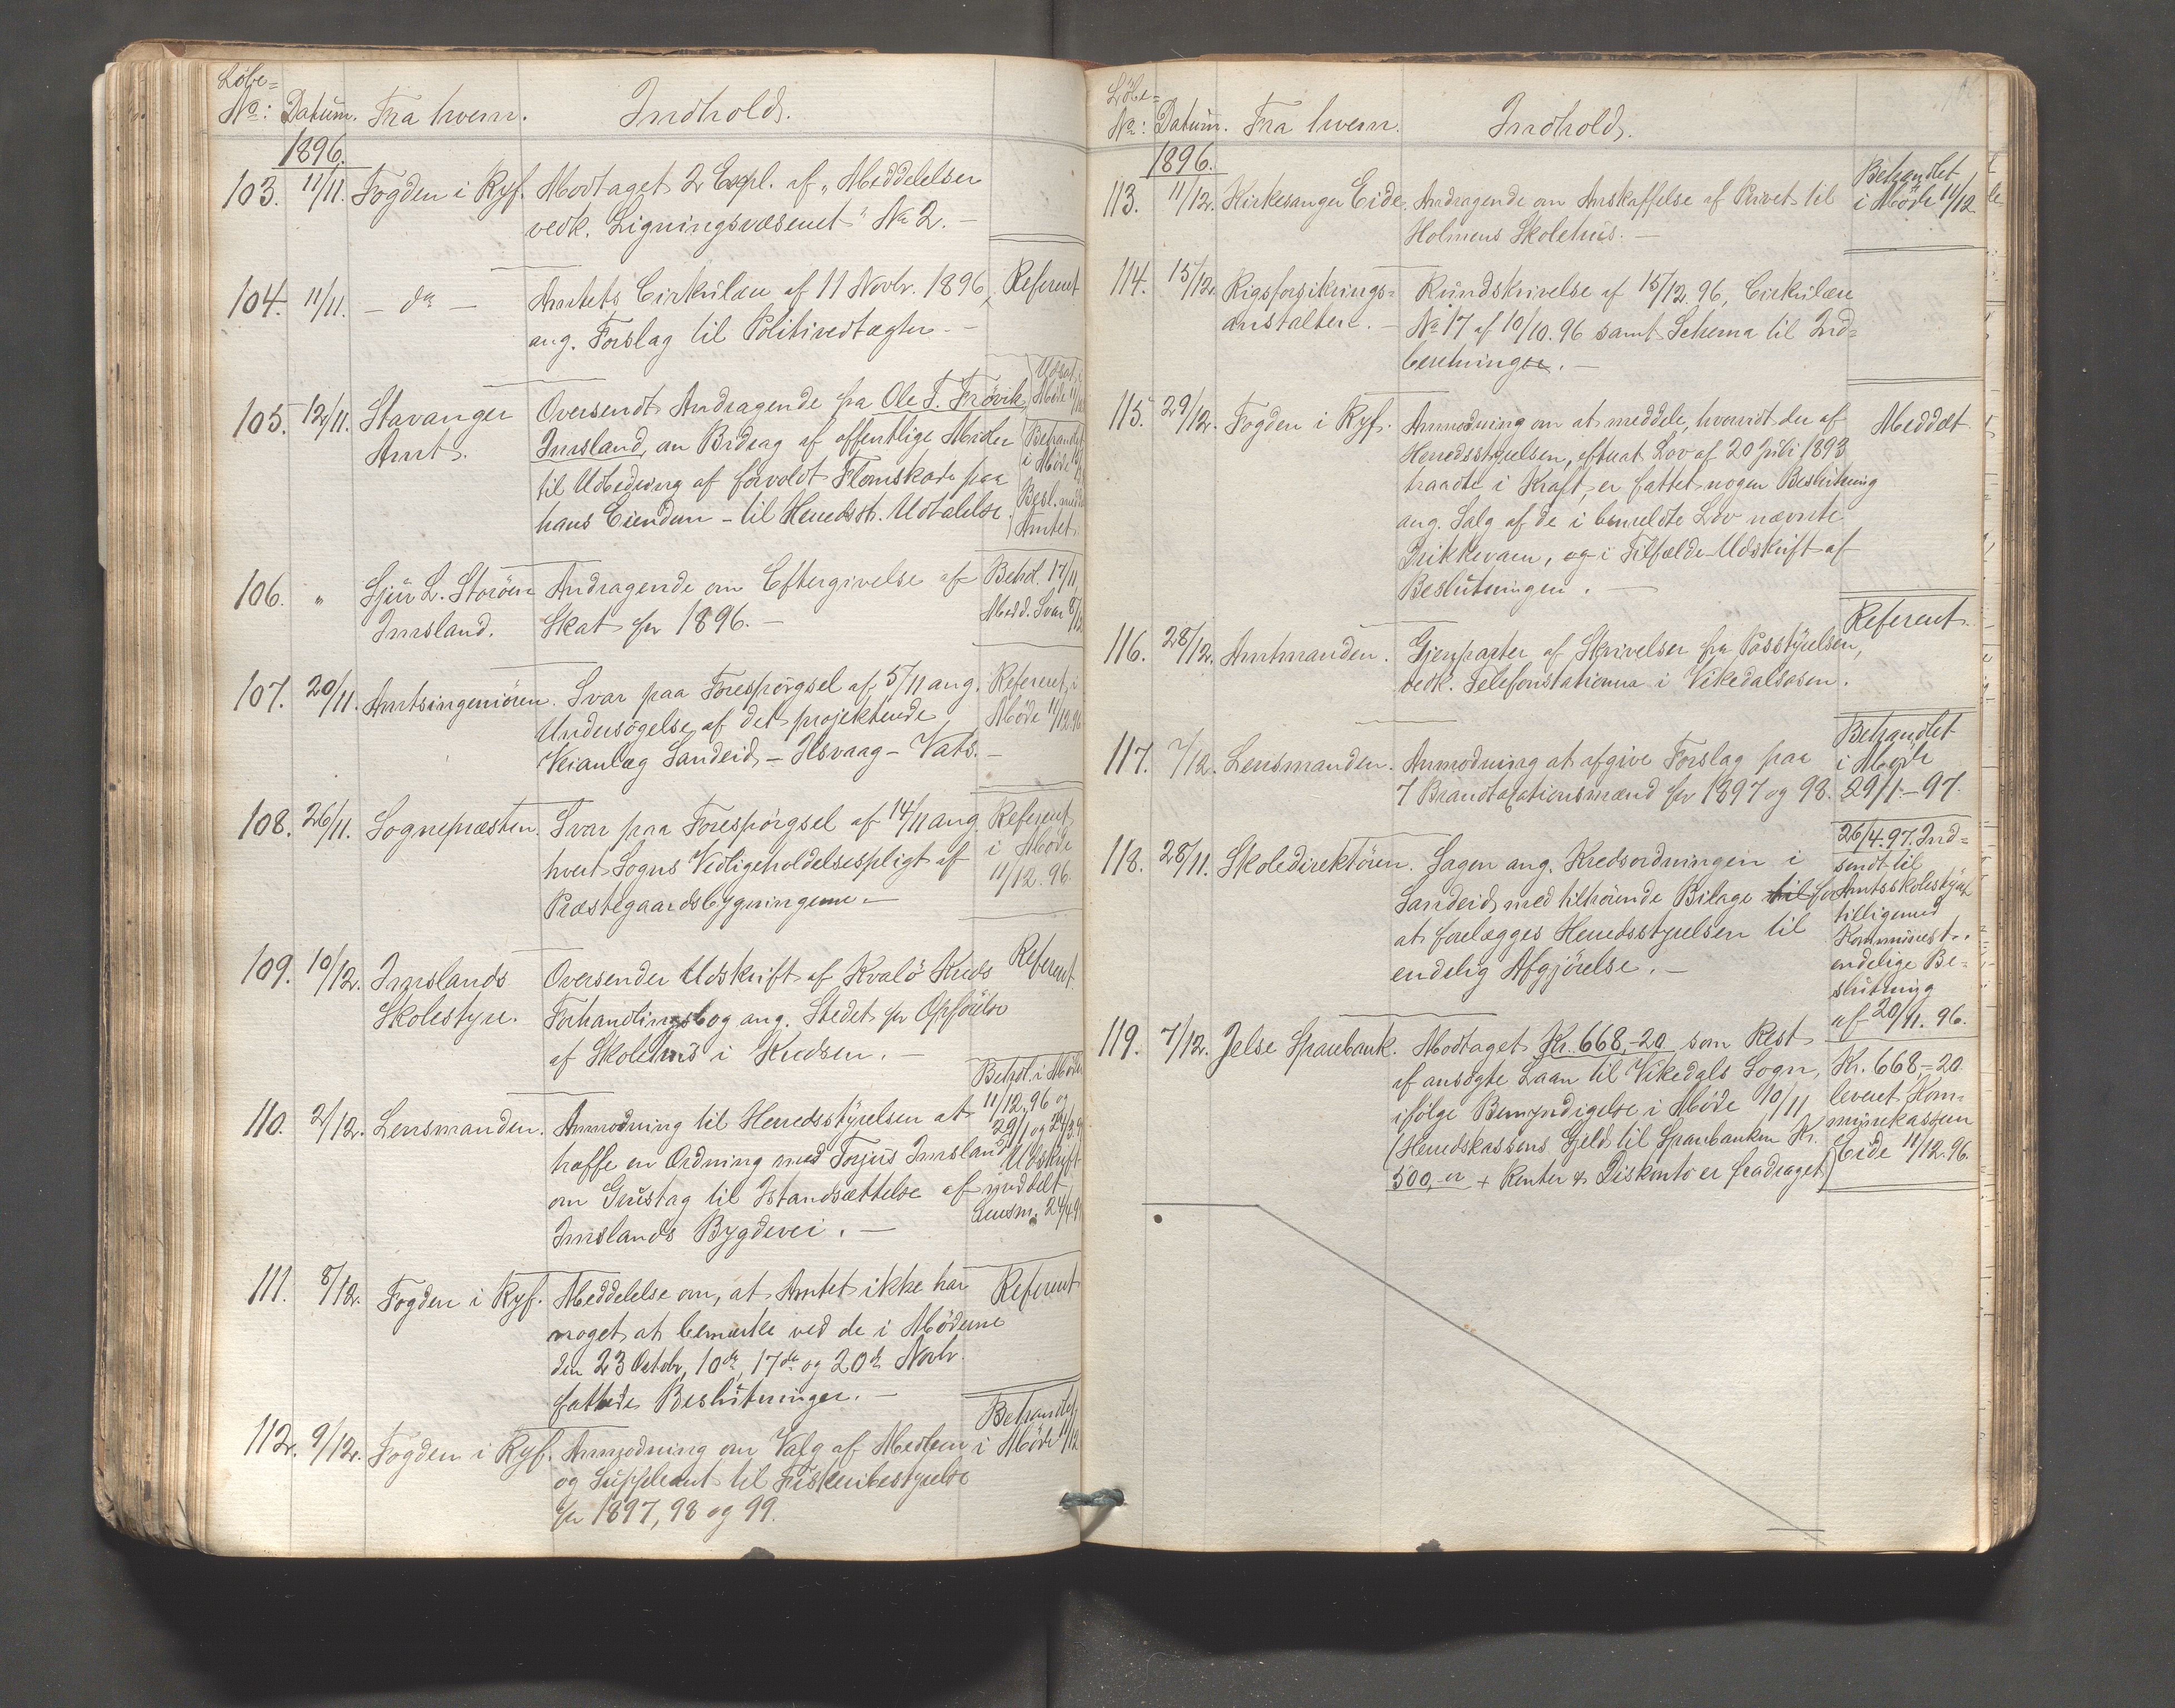 Løbe=
No: Datum. Fra hvem. Indhold.
1896.
103. 11/11. Fogden i Ryf. Modtaget 2 Expl. af „Meddelelser
vedk. Ligningsvæsenet" No 2. —
104. 11/11. — do — Amtets Cirkulære af 11 Novbr. 1896, Referert
ang. Forslag til Politivedtægter. —
Udsat i
Møde 11/
105. 12/11. Stavanger Oversendt Andragende fra Ole T. Frøvik,
Amt. Imsland, om Bidrag af offentlige Midler Behandlet
i Møde
til Udbedring af forvoldt Flomskade paa
hans Eiendom — til Herredsst. Udtalelse. Besl. medd.
Amtet.
106. " Sjur L. Storøen Andragende om Eftergivelse af Behdl. 17/11,
Imsland. Skat for 1896. — Medd. Svar 8/12
107. 20/11. Amtsingeniøren. Svar paa Forespørgsel af 5/11 ang. Referert i
Undersøgelse af det projekterede Møde 11/12.96
Veianlæg Sandeid — Ilsvaag — Vats. —
108. 26/11. Sognepræsten. Svar paa Forespørgsel af 14/11 ang. Referert
hvert Sogns Vedligeholdelsespligt af i Møde
11/12.96.
Præstegaardsbygningerne. —
109. 10/12. Imslands Oversender Udskrift af Kvalø Kreds Referert.
Skolestyre. Forhandlingsbog ang. Stedet for Opførelse
af Skolehus i Kredsen. —
Behdl. i Møde
11/12.96 og
110. 2/12. Lensmanden. Anmodning til Herredsstyrelsen at 29/1 og
træffe en Ordning med Torjus Imsland Udskrift
om Grustag til Istandsættelse af meddelt
Imslands Bygdevei. — Lensm. 24/4.9
111. 8/12. Fogden i Ryf. Meddelelse om, at Amtet ikke har Referert
noget at bemærke ved de i Møderne
den 23 Octobr, 10de, 17de og 20de Novbr.
fattede Beslutninger. —
Behandlet
112. 9/12. Fogden i Ryf. Anmodning om Valg af Medlem i Møde 11/12
og Suppleant til Fiskeribestyrelse
for 1897, 98 og 99.
Løbe=
No: Datum. Fra hvem. Indhold.
1896.
Behandlet
113. 11/12. Kirkesanger Eide. Andragende om Anskaffelse af Privet til i Møde 11/12
Holmens Skolehus. —
114. 15/12. Rigsforsikrings= Rundskrivelse af 15/12.96, Cirkulære
anstalten. — No 17 af 10/10.96 samt Schema til Ind=
beretninger. —
115. 29/12. Fogden i Ryf. Anmodning om at meddele, hvorvidt der af Meddelt
Herredsstyrelsen, efterat Lov af 20 Juli 1893
traadte i Kraft, er fattet nogen Beslutning
ang. Salg af de i bemeldte Lov nævnte
Drikkevarer, og i Tilfælde Udskrift af
Beslutningen. —
Referert.
116. 28/12. Amtmanden. Gjenparter af Skrivelser fra Poststyrelsen,
vedk. Telefonstationen i Vikedalsosen.
Behandlet
117. 7/12. Lensmanden. Anmodning at afgive Forslag paa i Møde
7 Brandtaxationsmænd for 1897 og 98. 29/1.—97.
26/4.97. Ind=
118. 28/11. Skoledirektøren. Sagen ang. Kredsordningen i sendt til
Sandeid med tilhørende Bilage til for Amtsskolestyret
tilligemed
at forelægges Herredsstyrelsen til Kommunest..
endelig Afgjørelse. — endelige Be=
slutning
af 20/11.96.
119. 7/12. Jelse Sparebank. Modtaget Kr. 668,-20 som Rest Kr. 668,-20
af ansøgte Laan til Vikedals Sogn, leveret Kom=
ifølge Bemyndigelse i Møde 10/11 munekasserer
(Herredskassens Gjeld til Sparebanken Kr. Eide 11/12.96.
500,- er + Renter & Diskonto er fradraget)